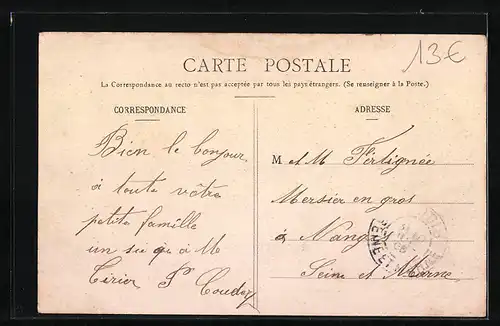 13€
CARTE POSTALE
La Correspondance au recto n'est pas acceptée par tous les pays étrangers. (Se renseigner à la Poste.)
CORRESPONDANCE
Bien le bonjour
à toute vôtre
petite famille
un
à M
ADRESSE
M et M
Mersier en gros
à Nangis
Seine et Marne